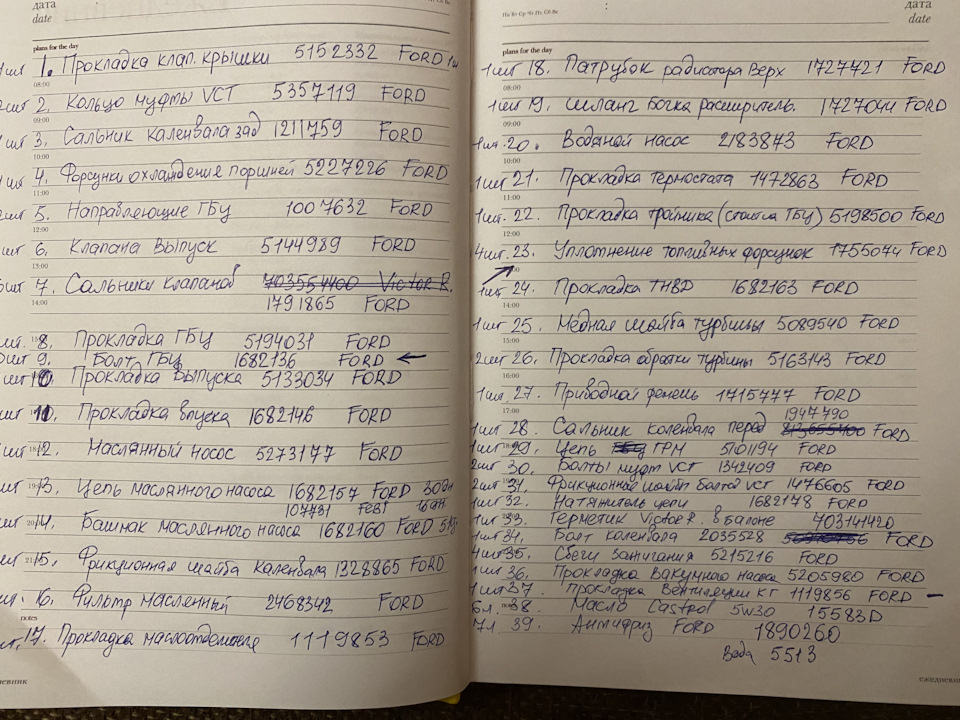 дата
date
plans for the day
1шт 1. Прокладка клап. крышки 5152332 FORD
08:00
2шт 2. Кольцо муфты VCT 5357119 FORD
09:00
1шт 3. Сальник каленвала зад 1211759 FORD
10:00
4. Форсунки охлаждения поршней 5227226 FORD
11:00
5. Направляющие ГБЦ 1007632 FORD
12:00
6. Клапана выпуск 5144989 FORD
13:00
7. Сальники клапанов 703554400 Victor R.
14:00
1791865 FORD
8. Прокладка ГБЦ 5194031 FORD
9. Болт ГБЦ 1682136 FORD ←
10. Прокладка выпуска 5133034 FORD
11. Прокладка впуска 1682146 FORD
12. Маслянный насос 5273177 FORD
13. Цепь маслянного насоса 1682157 FORD 30дн
107731 FEBI
14. Башмак маслянного насоса 1682160 FORD
15. Фрикционная шайба каленвала 1328865 FORD
16. Фильтр масленный 2468342 FORD
notes
17. Прокладка маслоотделителя 1119853 FORD
Пн Вт Ср Чт Пт Сб Вс
дата
date
plans for the day
1шт 18. Патрубок радиатора верх 1727721 FORD
08:00
1шт 19. Шланг бочка расширитель. 1727044 FORD
09:00
1шт. 20. Водяной насос 2183873 FORD
10:00
1шт 21. Прокладка термостата 1472863 FORD
11:00
1шт. 22. Прокладка тройника (стойка ГБЦ) 5198500 FORD
12:00
4шт. 23. Уплотнение топливных форсунок 1755074 FORD
1шт 24. Прокладка ТНВД 1682163 FORD
14:00
1шт 25. Медная шайба турбины 5089540 FORD
15:00
2шт 26. Прокладка обратки турбины 5163143 FORD
16:00
1шт. 27. Приводной ремень 1715777 FORD
17:00
1947790
1шт 28. Сальник коленвала перед FORD
1шт 29. Цепь ГРМ 5101194 FORD
2шт 30. Болты муфт VCT 1342409 FORD
2шт 31. Фрикционная шайба болтов VCT 1476605 FORD
1шт 32. Натянитель цепи 1682178 FORD
1шт 33. Герметик Victor R. в балоне 703141420
1шт 34. Болт каленвала 2035528 FORD
4шт 35. Свечи зажигания 5215216 FORD
1шт 36. Прокладка вакумного насоса 5205980 FORD
1шт 37. Прокладка вентиляции КГ 1119856 FORD –
6л. 38. Масло Castrol 5W30 15583D
7л. 39. Антифриз FORD 1890260
Вода 5513